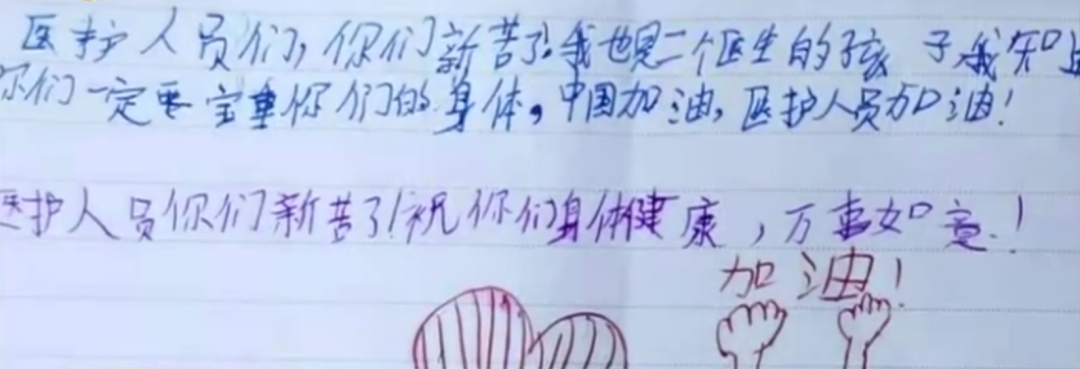 医护人员们,你们新苦了!我也是一个医生的孩子我知
你们一定要宝重你们的身体,中国加油,医护人员加油!
医护人员你们新苦了!祝你们身体健康,万事如意.!
加油!